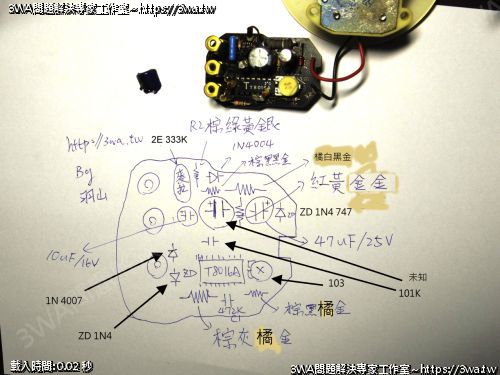 3WA問題解決專家工作室~https://3wa.tw
R2棕綠黃銀
http://3wa.tw
2E 333K
1N4004
棕黑黑金
橘白黑金
By
羽山
紅黃金金
ZD 1N4 747
47uF/25V
10uF/16V
未知
101K
1N 4007
ZD
T8016A
103
ZD 1N4
472K
C1
棕黑橘金
棕灰橘金
載入時間: 0.02 秒
3WA問題解決專家工作室~https://3wa.tw